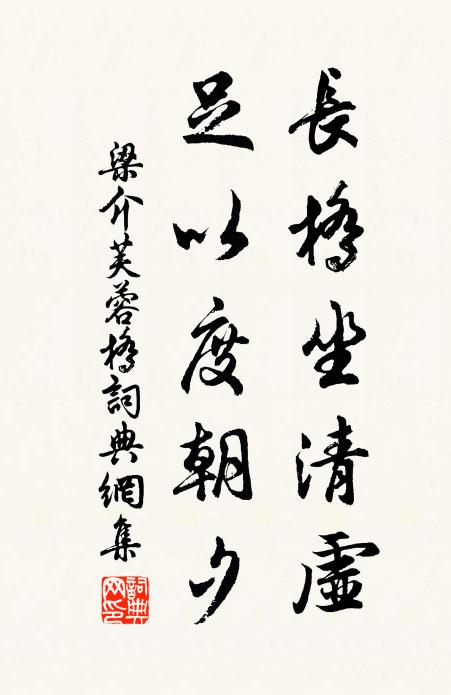 長橋坐清虛
足以度朝夕
梁介芙蓉橋詞典網集
詞典網印